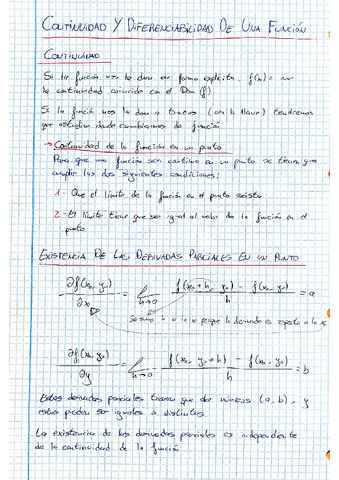 CONTINUIDAD Y DIFERENCIABILIDAD DE UNA FUNCIÓN
CONTINUIDAD
Si la función nos la dan en forma explícita, f(x) =
la continuidad coincide con el Dom (f)
Si la función nos la dan a trozos (con llave) tendremos
que estudiar donde cambiamos de función
→ Continuidad de la función en un punto
Para que una función sea continua en un punto se tienen que
cumplir las dos siguientes condiciones:
1 - Que el límite de la función en el punto exista
2 - El límite tiene que ser igual al valor de la función en el
punto
EXISTENCIA DE LAS DERIVADAS PARCIALES EN UN PUNTO
∂f(x₀, y₀)/∂x = lim h→0 f(x₀+h, y₀) - f(x₀, y₀)/h = a
h a la x porque la derivada es respecto a la x
∂f(x₀, y₀)/∂y = lim h→0 f(x₀, y₀+h) - f(x₀, y₀)/h = b
Estas derivadas parciales tienen que dar números (a, b), y
estos pueden ser iguales o distintos.
La existencia de las derivadas parciales es independiente
de la continuidad de la función